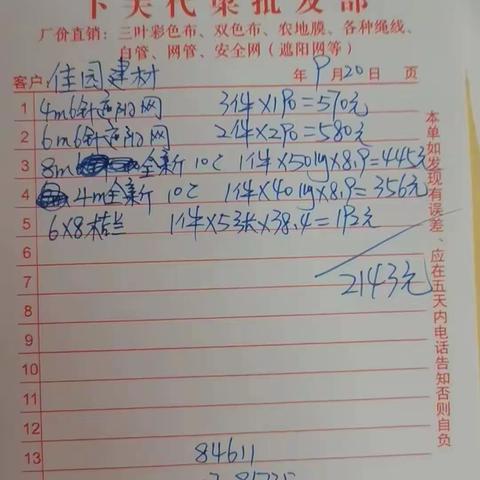 下关代集批发部
厂价直销：三叶彩色布、双色布、农地膜、各种绳线、
自管、网管、安全网（遮阳网等）
客户：佳园建材 年9月20日 页
1 4m6针遮阳网 3件×190=570元
2 6m6针遮阳网 2件×290=580元
3 8m 全新10C 1件×50kg×8.9=445元
4 4m全新10C 1件×40kg×8.9=356元
5 6×8桔兰 1件×5张×38.4=192元
6
7 2143元
8
9
10
11
12
13 84611
本单如发现有误差、应在五天内电话告知否则自负